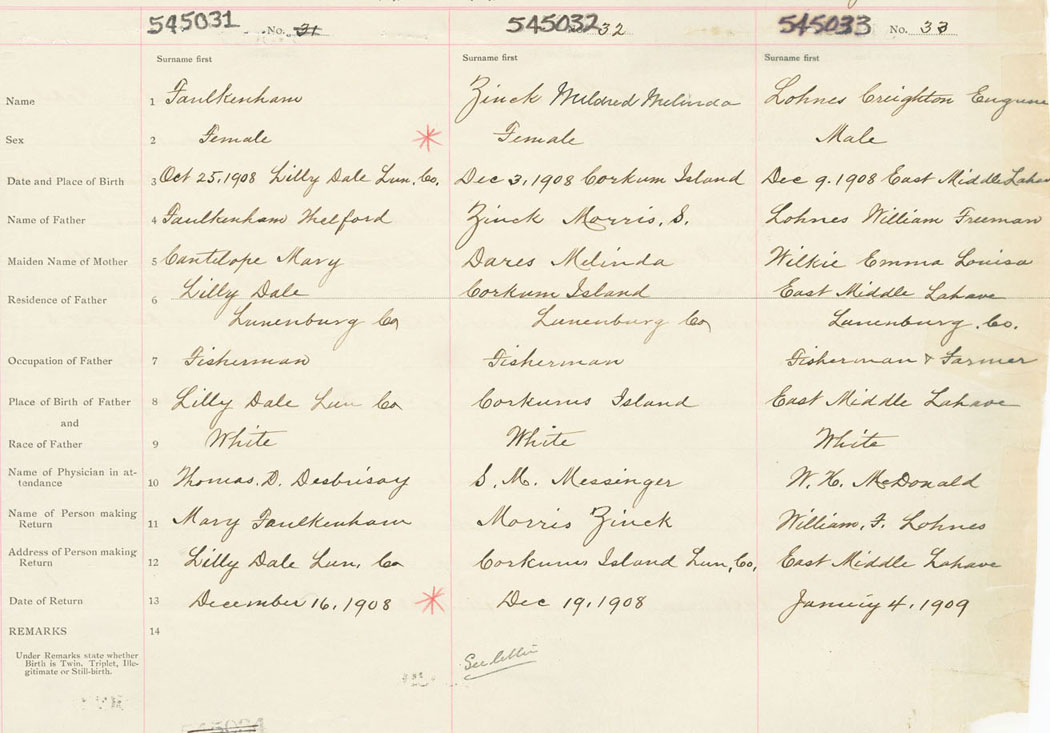 545031 No. 31 545032 32 545033 No. 33
Surname first Surname first Surname first
Name 1 Faulkenham Zinck Mildred Melinda Lohnes Creighton Eugune
Sex 2 Female Female Male
Date and Place of Birth 3 Oct 25, 1908 Lilly Dale Lun. Co. Dec 3, 1908 Corkum Island Dec 9. 1908 East Middle Lahave
Name of Father 4 Faulkenham Thelford Zinck Morris, S. Lohnes William Freeman
Maiden Name of Mother 5 Cantelope Mary Dares Melinda Wilkie Emma Louisa
Residence of Father 6 Lilly Dale Corkum Island East Middle Lahave
Lunenburg Co Lunenburg Co Lunenburg. Co.
Occupation of Father 7 Fisherman Fisherman Fisherman & Farmer
Place of Birth of Father 8 Lilly Dale Lun Co Corkums Island East Middle Lahave
and
Race of Father 9 White White White
Name of Physician in at-
tendance 10 Thomas. D. Desbrisay S. M. Messinger W. H. McDonald
Name of Person making
Return 11 Mary Faulkenham Morris Zinck William. F. Lohnes
Address of Person making
Return 12 Lilly Dale Lun. Co Corkums Island Lun, Co, East Middle Lahave
Date of Return 13 December 16, 1908 Dec 19, 1908 Januiy 4, 1909
REMARKS 14
Under Remarks state whether
Birth is Twin, Triplet, Ille-
gitimate or Still-birth.
See